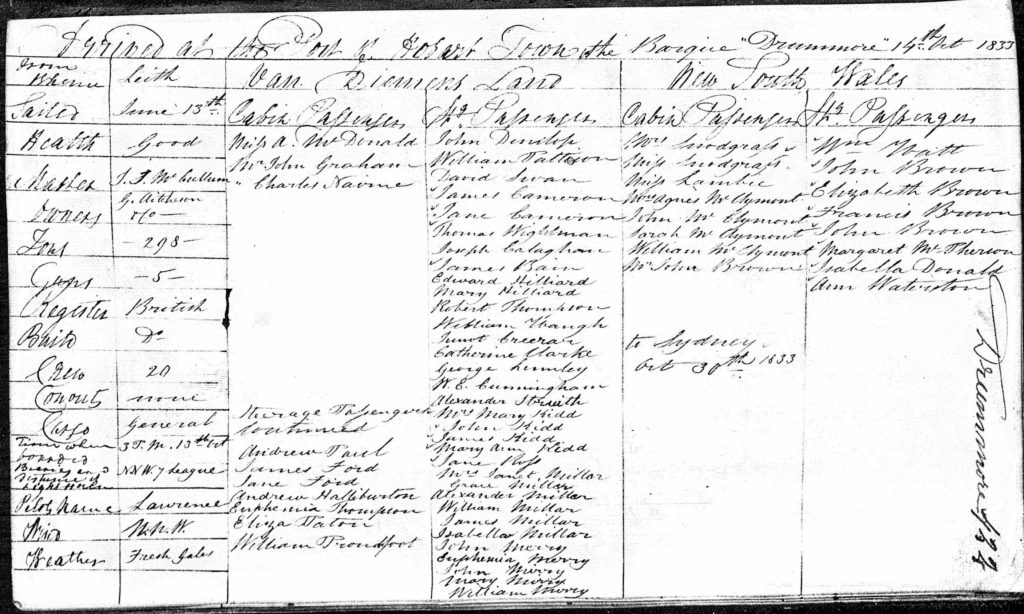 Arrived at the Port of Hobart Town the Barque "Drummore" 14th Oct 1833
from Whence Leith
Sailed June 13th
Health Good
Master J. F. McCullum
Owners G. Aitcheson
Tons 298
Guns 5
Register British
Build Do
Crew 20
Convicts none
Cargo General
Time when boarded 3 P.M. 13th Oct
Bearing and Distance of Light House N N W 7 League
Pilots Name Lawrence
Wind N.N.W.
Weather Fresh Gales
Van Diemens Land
Cabin Passengers
Miss A. McDonald
Mr John Graham
" Charles Nairne
Steerage Passengers Continued
Andrew Paul
James Ford
Jane Ford
Andrew Halliburton
Euphemia Thompson
Eliza Paton
William Proudfoot
Stg Passengers
John Dunlop
William Patterson
David Swan
James Cameron
Jane Cameron
Thomas Wightman
Joseph Calagham
James Bain
Edward Hilliard
Mary Hilliard
Robert Thompson
William Waugh
Creerar
Catherine Clarke
George
W. E. Cunningham
Alexander
Mrs Mary Kidd
John Kidd
James Kidd
Mary Ann Kidd
Jane Ross
Mrs Janet Millar
Grace Millar
Alexander Millar
William Millar
James Millar
Isabella Millar
John Merry
Euphemia Merry
John Merry
Mary Merry
William Merry
New South Wales
Cabin Passengers
Mrs Snodgrass
Miss Snodgrass
Miss Lambie
Mrs Agnes McClymont
John McClymont
Sarah McClymont
William McClymont
Mr John Brown
to Sydney
Oct 30th 1833
Stg Passengers
Wm Watt
John Brown
Elizabeth Brown
Francis Brown
John Brown
Margaret McPherson
Isabella Donald
Ann Waterston
Drummore